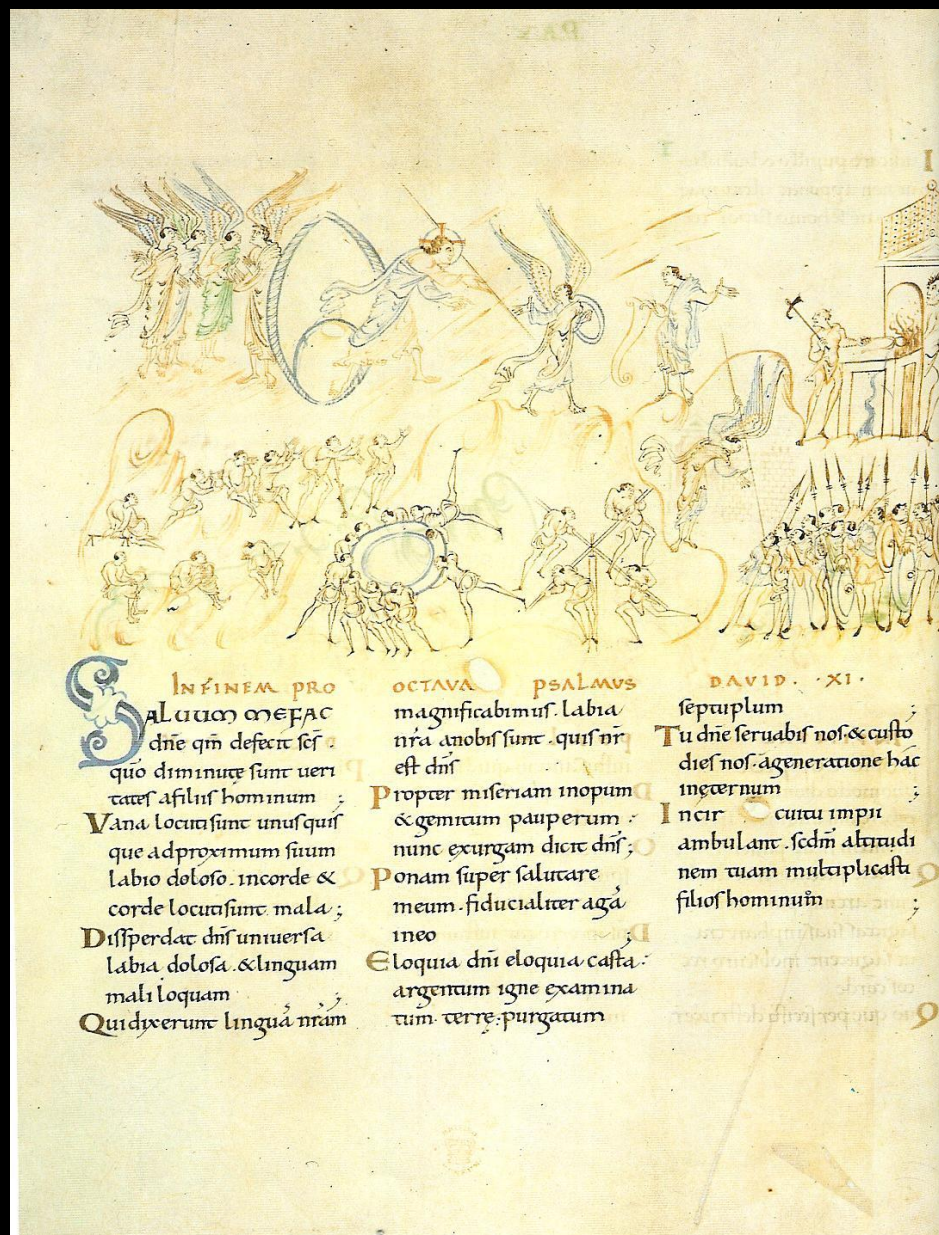 INFINEM PRO OCTAVA PSALMUS DAVID. XI.
SALUUM MEFAC
dñe qm̄ defecit scs̄.
qūo diminutę sunt ueri
tates afiliis hominum ;
Vana locutisunt unusquis
que adproximum suum
labio doloso. incorde &
corde locutisunt mala ;
Dissperdat dñs uniuersa
labia dolosa. &linguam
mali loquam ;
Quidixerunt linguā nr̄am
magnificabimus. labia
nr̄a anobis sunt. quis nr̄
est dñs
Propter miseriam inopum
&gemitum pauperum.
nunc exurgam dicit dñs ;
Ponam super salutare
meum. fiducialiter agā
ineo ;
Eloquia dñi eloquia casta.
argentum igne examina
tum. terrę. purgatum
septuplum ;
Tu dñe seruabis nos &custo
dies nos. ageneratione hāc
inęternum ;
Incircuitu impii
ambulant. scdm̄ altitudi
nem tuam multiplicasti
filios hominum ;